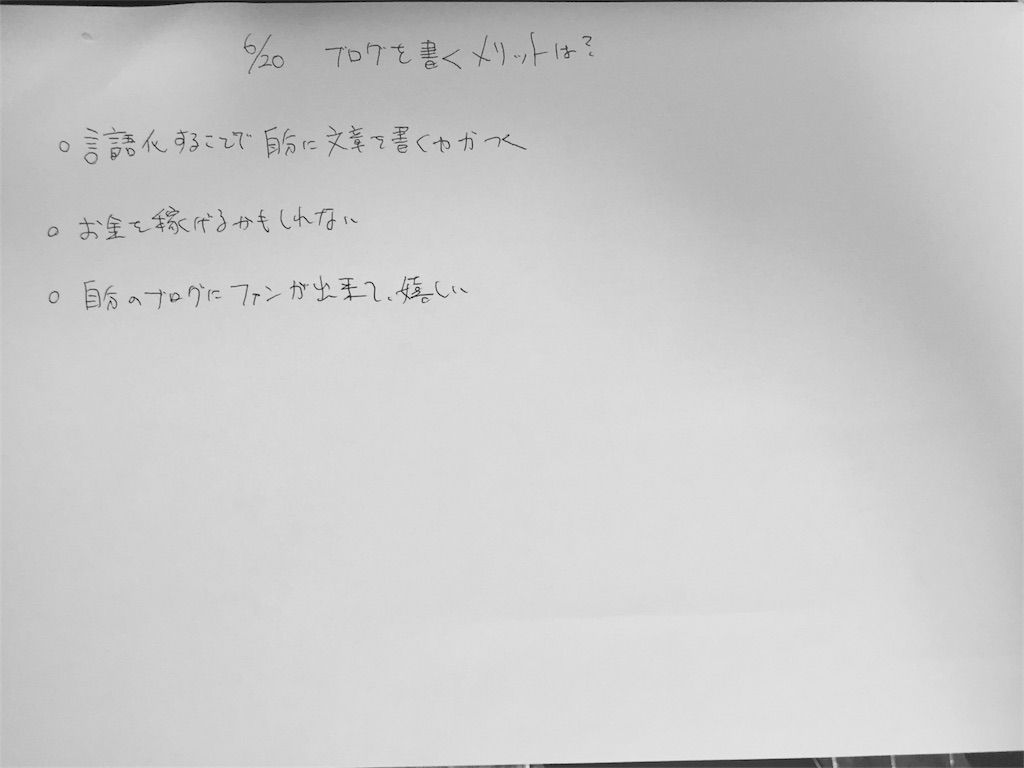 6/20 ブログを書くメリットは?
○ 言語化することで自分に文章を書く力がつく
○ お金を稼げるかもしれない
○ 自分のブログにファンが出来て、嬉しい